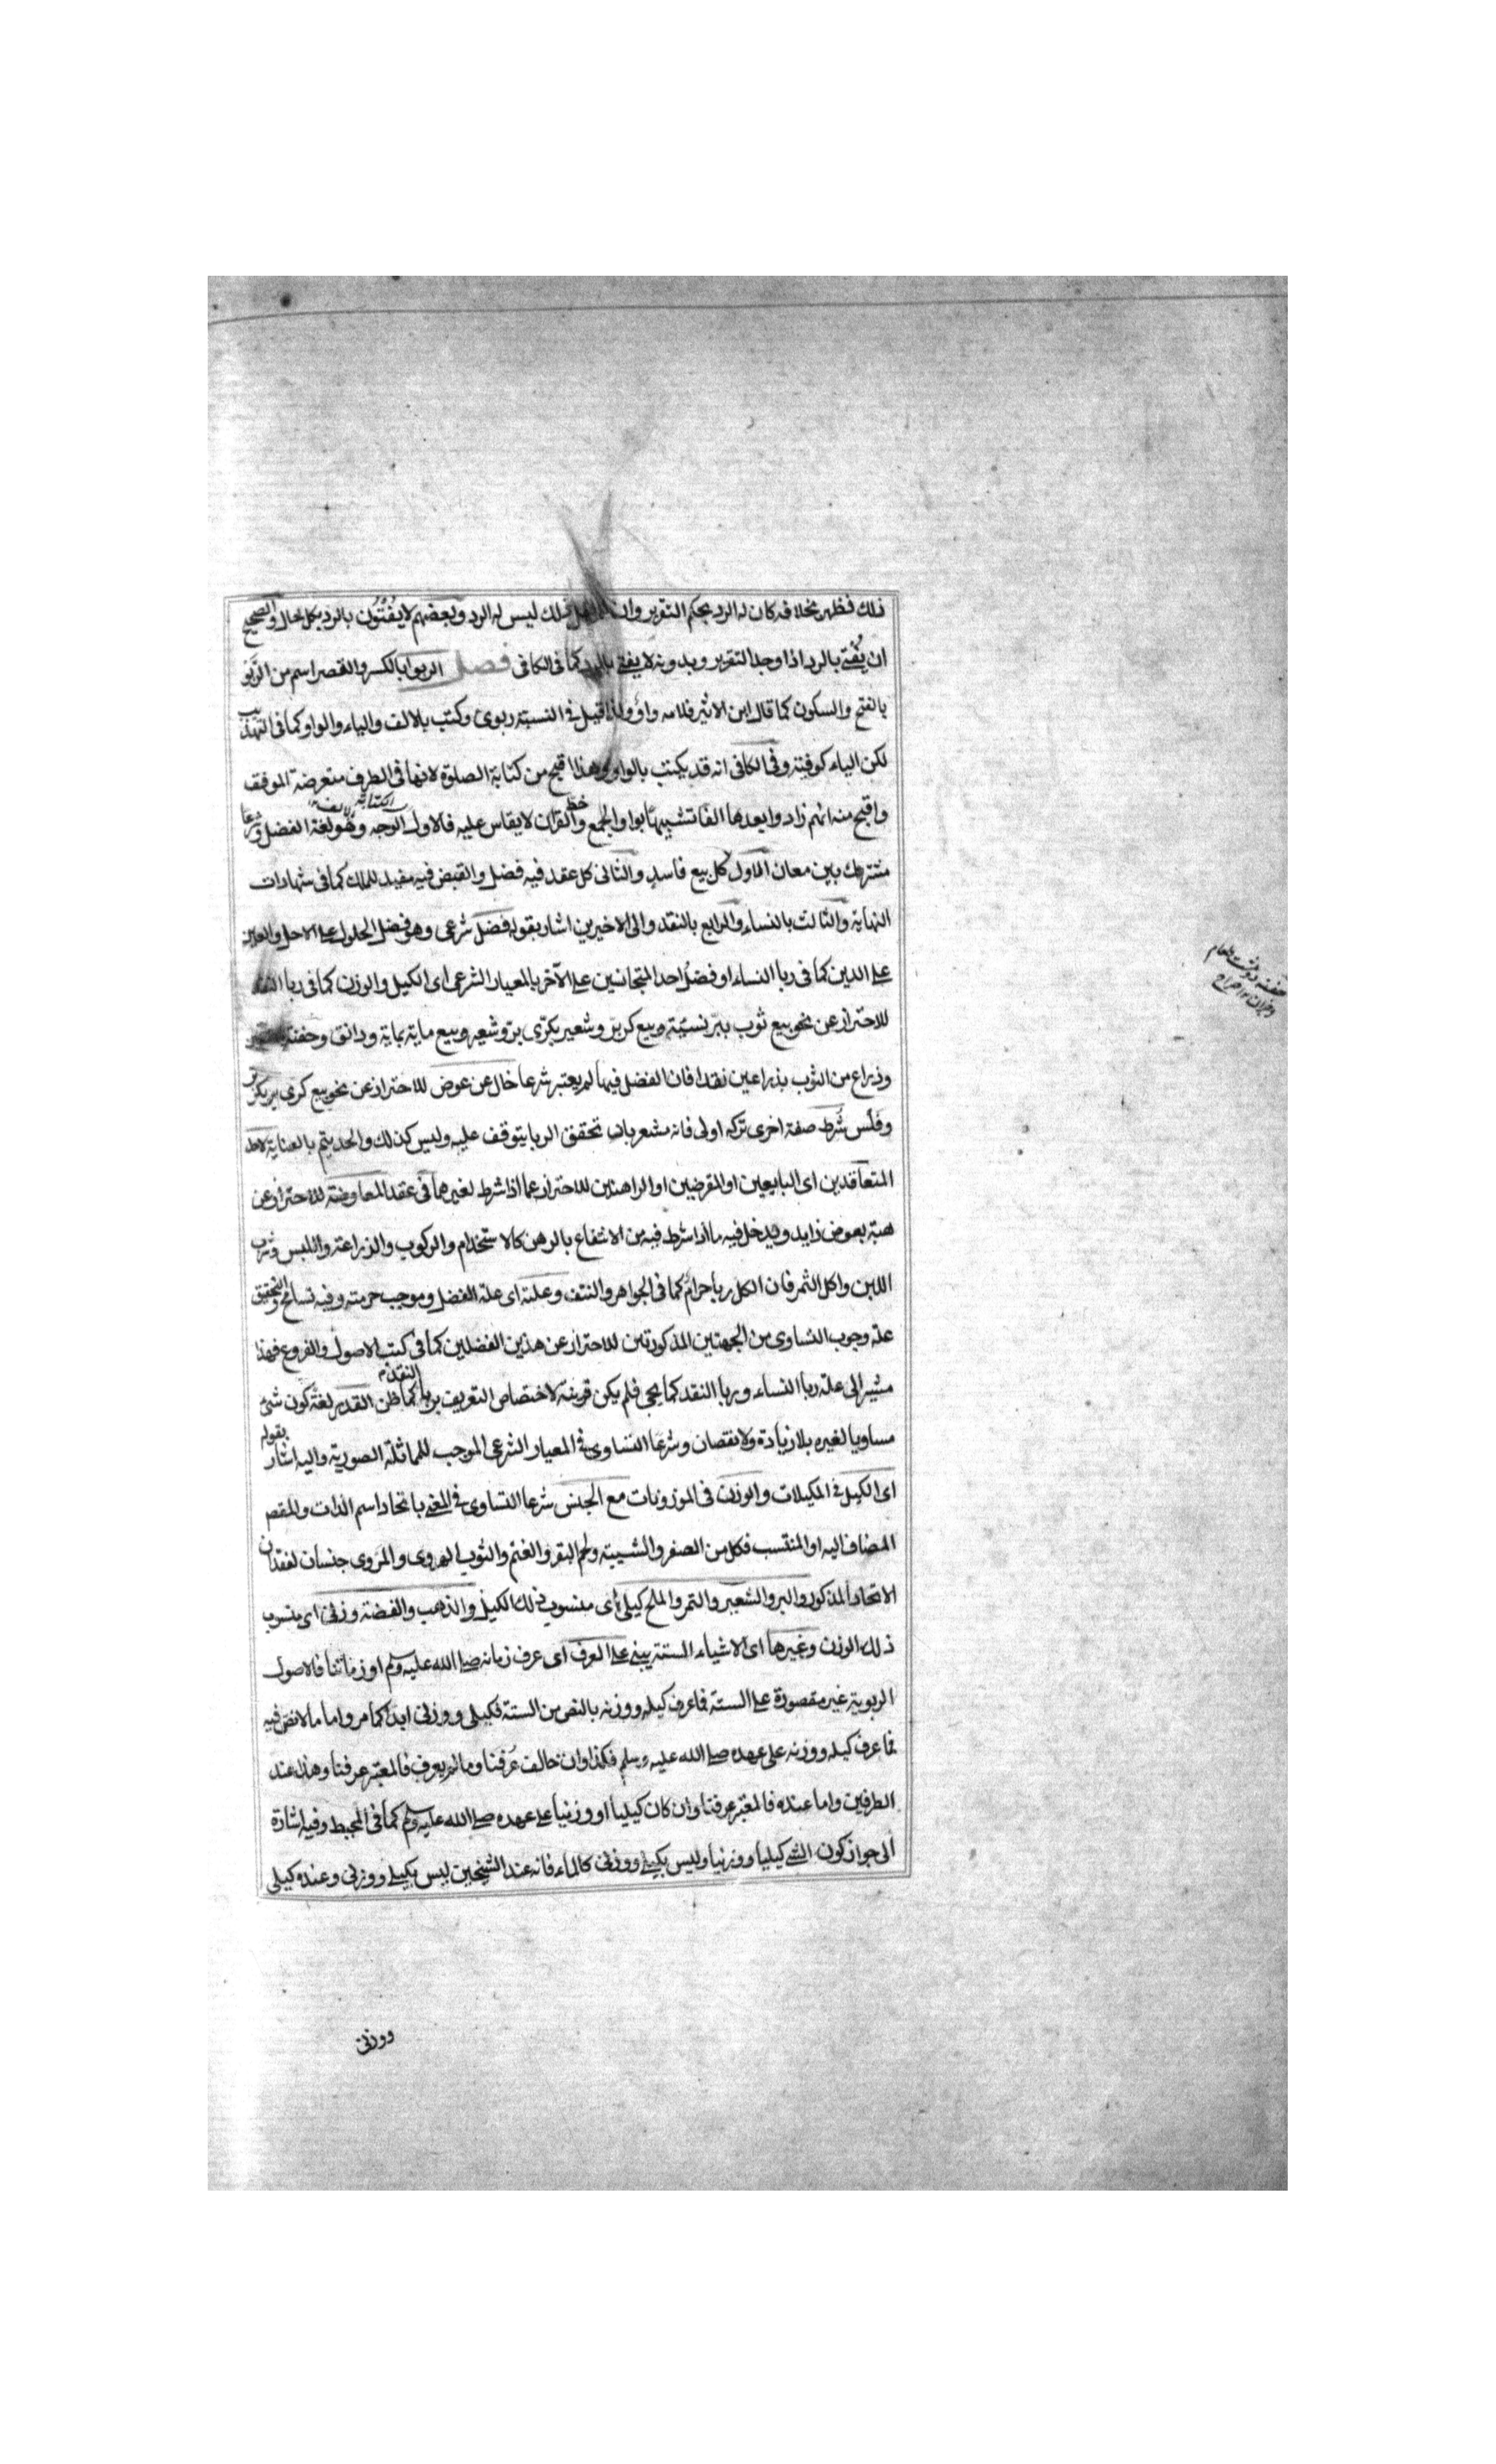 ذلك فظهر بخلافه كان له الرد بحكم التقرير وان ذلك ليس له الرد وبعضهم لا يفتون بالرد بكل حال والصحيح
ان يفتى بالرد اذا وجد التقرير وبدونه لا يفتى بالرد كما فى الكافى فصل الربوا بالكسر والقصر اسم من الربو
بالفتح والسكون كما قال ابن الاثير فلامه واو ولذا قيل فى النسبة ربوى وكتب بالالف والياء والواو كما فى التهذيب
لكن الياء كوفية وفى الكافى انه قد يكتب بالواو وهذا اقبح من كتابة الصلوة لانها فى الطرف متعرضة الموقف
واقبح منه انهم زادوا بعدها الفا تشبيها بواو الجمع وخط القران لا يقاس عليه فالاول الوجه وهو لغة الفضل وشرعا
مشترك بين معان الاول كل بيع فاسد والثانى كل عقد فيه فضل والقبض فيه مفيد للملك كما فى شهادات
النهاية والثالث بالنساء والرابع بالنقد والى الاخيرين اشار بقوله فضل شرعى وهو فضل الحلول على الاجل والعين
على الدين كما فى ربا النساء او فضل احد المتجانسين على الآخر بالمعيار الشرعى اى الكيل والوزن كما فى ربا النقد
للاحتراز عن نحو بيع ثوب ببر نسئية وبيع كر بر وشعير بكرى بر وشعير وبيع ماية بماية ودانق وحفنة
وذراع من الثوب بذراعين نقدا فان الفضل فيها لم يعتبر شرعا خال عن عوض للاحتراز عن نحو بيع كرى بر بكر بر
وفلس شرط صفة اخرى تركه اولى فانه مشعر بان تحقق الربا يتوقف عليه وليس كذلك والحد يتم بالعناية لاحد
المتعاقدين اى البايعين او المقرضين او الراهنين للاحتراز عما اذا شرط لغيرهما فى عقد المعاوضة للاحتراز عن
هبة بعوض زايد ويدخل فيه ما اذا شرط فيه من الانتفاع بالرهن كالاستخدام والركوب والزراعة واللبس وشرب
اللبن واكل الثمر فان الكل ربا حرام كما فى الجواهر والنتف وعلته اى علة الفضل وموجب حرمته وفيه تسامح والتحقيق
علة وجوب التساوى من الجهتين المذكورتين للاحتراز عن هذين الفضلين كما فى كتب الاصول والفروع فهذا
مشير الى علة ربا النساء وربا النقد كما يجى فلم يكن قرينة لاختصاص التعريف بربا النقد كما ظن القدر لغة كون شئ
مساويا لغيره بلا زيادة ولا نقصان وشرعا التساوى فى المعيار الشرعى الموجب للمماثلة الصورية واليه اشار بقوله
اى الكيل فى المكيلات والوزن فى الموزونات مع الجنس شرعا التساوى فى المعنى باتحاد اسم الذات والمقص
المضاف اليه او المنتسب فكل من الصفر والشبه ولحم البقر والغنم والثوب الهروى والمروى جنسان لفقدان
الاتحاد المذكور والبر والشعير والتمر والملح كيلى اى منسوب ذلك الكيل والذهب والفضة وزنى اى منسوب
ذلك الوزن وغيرها اى الاشياء الستة يبنى على العرف اى عرف زمانه صلى الله عليه وسلم او زماننا فالاصول
الربوية غير مقصورة على الستة فما عرف كيله ووزنه بالنص من الستة فكيلى ووزنى ابدا كما مر واما ما لا نص فيه
فما عرف كيله ووزنه على عهده صلى الله عليه وسلم فكذا وان خالف عرفنا وما لم يعرف فالمعتبر عرفنا وهذا عند
الطرفين واما عنده فالمعتبر عرفنا وان كان كيليا او وزنيا على عهده صلى الله عليه وسلم كما فى المحيط وفيه اشارة
الى جواز كون الشئ كيليا ووزنيا وليس بكيلى ووزنى كالماء فانه عند الشيخين ليس بكيلى ووزنى وعنده كيلى
ووزنى